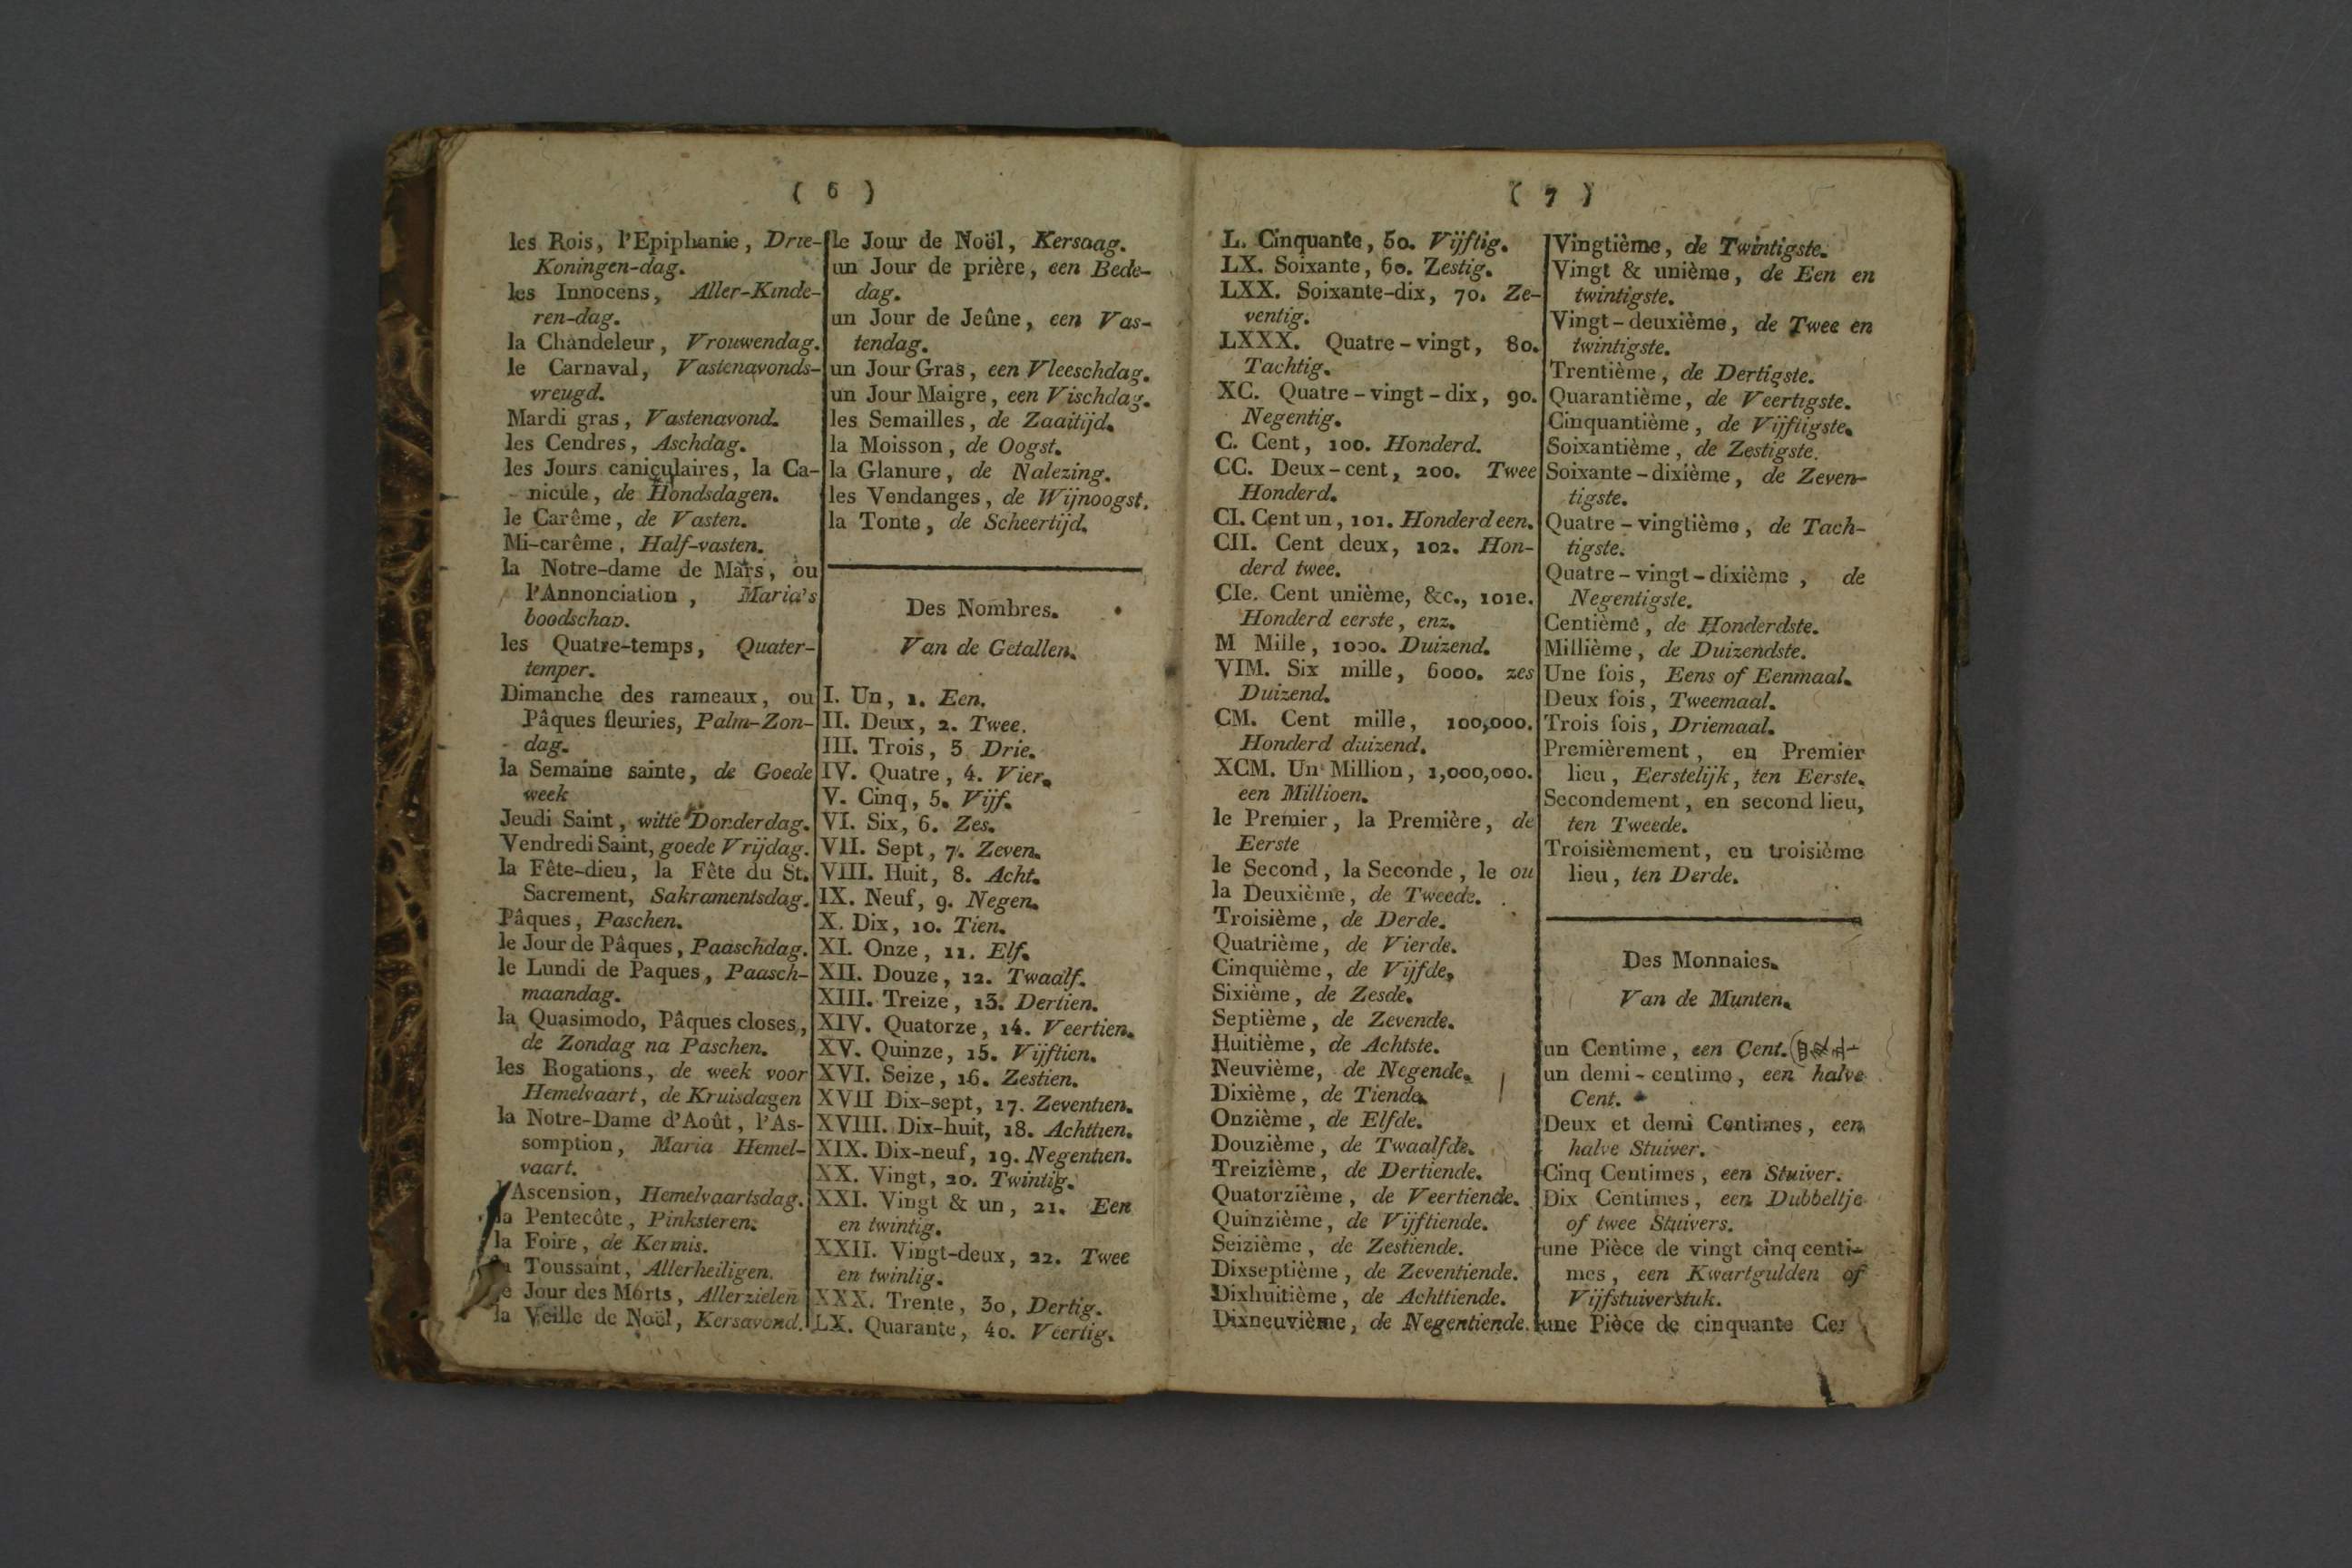 ( 6 )
les Rois, l'Epiphanie, Drie-
Koningen-dag.
les Innocens, Aller-Kinde-
ren-dag.
la Chandeleur, Vrouwendag.
le Carnaval, Vastenavonds-
vreugd.
Mardi gras, Vastenavond.
les Cendres, Aschdag.
les Jours caniculaires, la Ca-
nicule, de Hondsdagen.
le Carême, de Vasten.
Mi-carême, Half-vasten.
la Notre-dame de Mars, ou
l'Annonciation, Maria's
boodschap.
les Quatre-temps, Quater-
temper.
Dimanche des rameaux, ou
Pâques fleuries, Palm-Zon-
dag.
la Semaine sainte, de Goede
week
Jeudi Saint, witte Donderdag.
Vendredi Saint, goede Vrijdag.
la Fête-dieu, la Fête du St.
Sacrement, Sakramentsdag.
Pâques, Paschen.
le Jour de Pâques, Paaschdag.
le Lundi de Paques, Paasch-
maandag.
la Quasimodo, Pâques closes,
de Zondag na Paschen.
les Rogations, de week voor
Hemelvaart, de Kruisdagen
la Notre-Dame d'Août, l'As-
somption, Maria Hemel-
vaart.
l'Ascension, Hemelvaartsdag.
la Pentecôte, Pinksteren.
la Foire, de Kermis.
la Toussaint, Allerheiligen.
le Jour des Morts, Allerzielen
la Veille de Noël, Kersavond.
le Jour de Noël, Kersdag.
un Jour de prière, een Bede-
dag.
un Jour de Jeûne, een Vas-
tendag.
un Jour Gras, een Vleeschdag.
un Jour Maigre, een Vischdag.
les Semailles, de Zaaitijd.
la Moisson, de Oogst.
la Glanure, de Nalezing.
les Vendanges, de Wijnoogst.
la Tonte, de Scheertijd.
Des Nombres.
Van de Getallen.
I. Un, 1. Een.
II. Deux, 2. Twee.
III. Trois, 3 Drie.
IV. Quatre, 4. Vier.
V. Cinq, 5. Vijf.
VI. Six, 6. Zes.
VII. Sept, 7. Zeven.
VIII. Huit, 8. Acht.
IX. Neuf, 9. Negen.
X. Dix, 10. Tien.
XI. Onze, 11. Elf.
XII. Douze, 12. Twaalf.
XIII. Treize, 13. Dertien.
XIV. Quatorze, 14. Veertien.
XV. Quinze, 15. Vijftien.
XVI. Seize, 16. Zestien.
XVII Dix-sept, 17. Zeventien.
XVIII. Dix-huit, 18. Achttien.
XIX. Dix-neuf, 19. Negentien.
XX. Vingt, 20. Twintig.
XXI. Vingt & un, 21. Een
en twintig.
XXII. Vingt-deux, 22. Twee
en twintig.
XXX. Trente, 30, Dertig.
LX. Quarante, 40. Veertig.
( 7 )
L. Cinquante, 50. Vijftig.
LX. Soixante, 60. Zestig.
LXX. Soixante-dix, 70. Ze-
ventig.
LXXX. Quatre-vingt, 80.
Tachtig.
XC. Quatre-vingt-dix, 90.
Negentig.
C. Cent, 100. Honderd.
CC. Deux-cent, 200. Twee
Honderd.
CI. Cent un, 101. Honderd een.
CII. Cent deux, 102. Hon-
derd twee.
CIe. Cent unième, &c., 101e.
Honderd eerste, enz.
M Mille, 1000. Duizend.
VIM. Six mille, 6000. zes
Duizend.
CM. Cent mille, 100,000.
Honderd duizend.
XCM. Un Million, 1,000,000.
een Millioen.
le Premier, la Première, de
Eerste
le Second, la Seconde, le ou
la Deuxième, de Tweede.
Troisième, de Derde.
Quatrième, de Vierde.
Cinquième, de Vijfde.
Sixième, de Zesde.
Septième, de Zevende.
Huitième, de Achtste.
Neuvième, de Negende.
Dixième, de Tiende.
Onzième, de Elfde.
Douzième, de Twaalfde.
Treizième, de Dertiende.
Quatorzième, de Veertiende.
Quinzième, de Vijftiende.
Seizième, de Zestiende.
Dixseptième, de Zeventiende.
Dixhuitième, de Achttiende.
Dixneuvième, de Negentiende.
Vingtième, de Twintigste.
Vingt & unième, de Een en
twintigste.
Vingt-deuxième, de Twee en
twintigste.
Trentième, de Dertigste.
Quarantième, de Veertigste.
Cinquantième, de Vijftigste.
Soixantième, de Zestigste.
Soixante-dixième, de Zeven-
tigste.
Quatre-vingtième, de Tach-
tigste.
Quatre-vingt-dixième, de
Negentigste.
Centième, de Honderdste.
Millième, de Duizendste.
Une fois, Eens of Eenmaal.
Deux fois, Tweemaal.
Trois fois, Driemaal.
Premièrement, en Premier
lieu, Eerstelijk, ten Eerste.
Secondement, en second lieu,
ten Tweede.
Troisièmement, en troisième
lieu, ten Derde.
Des Monnaies.
Van de Munten.
un Centime, een Cent.
un demi-centime, een halve
Cent.
Deux et demi Centimes, een
halve Stuiver.
Cinq Centimes, een Stuiver.
Dix Centimes, een Dubbeltje
of twee Stuivers.
une Pièce de vingt cinq centi-
mes, een Kwartgulden of
Vijfstuiverstuk.
une Pièce de cinquante